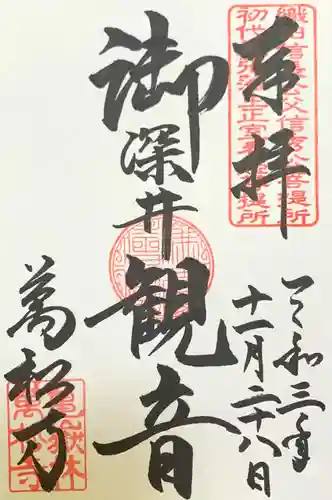 奉拝
織田信長公父信秀公菩提所
初代尾張藩主正室春姫菩提所
御深井観音
令和三年
十一月二十八日
萬松寺
龜嶽林
萬松寺